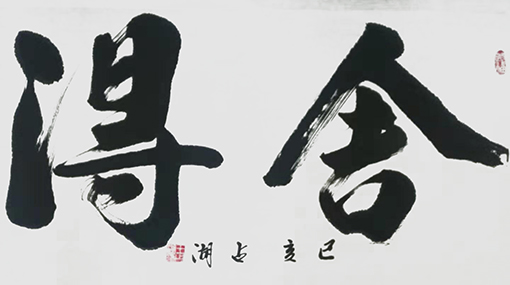 舍得
己亥 占湖